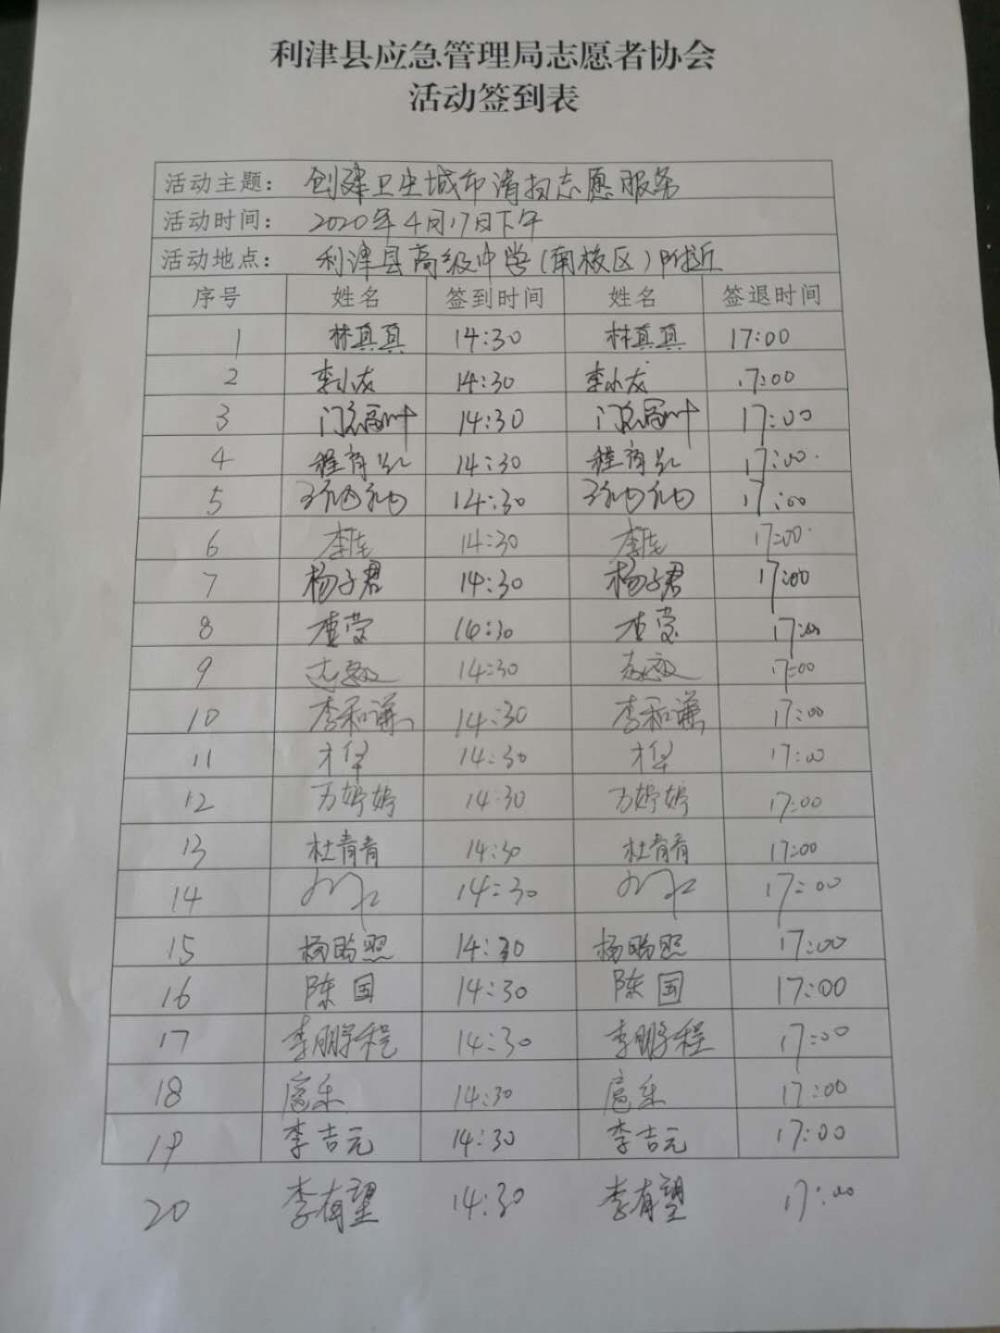 利津县应急管理局志愿者协会
活动签到表
活动主题： 创建卫生城市清扫志愿服务
活动时间： 2020年4月17日下午
活动地点： 利津县高级中学(南校区)附近
序号 姓名 签到时间 姓名 签退时间
1 林真真 14:30 林真真 17:00
2 李小友 14:30 李小友 17:00
3 14:30 17:00
4 14:30 17:00
5 14:30 17:00
6 李 14:30 李 17:00
7 杨子君 14:30 杨子君 17:00
8 14:30 17:00
9 14:30 17:00
10 李和谦 14:30 李和谦 17:00
11 14:30 17:00
12 万婷婷 14:30 万婷婷 17:00
13 杜青青 14:30 杜青青 17:00
14 14:30 17:00
15 杨晗照 14:30 杨晗照 17:00
16 陈国 14:30 陈国 17:00
17 李鹏程 14:30 李鹏程 17:00
18 扈乐 14:30 扈乐 17:00
19 李吉元 14:30 李吉元 17:00
20 李有望 14:30 李有望 17:00